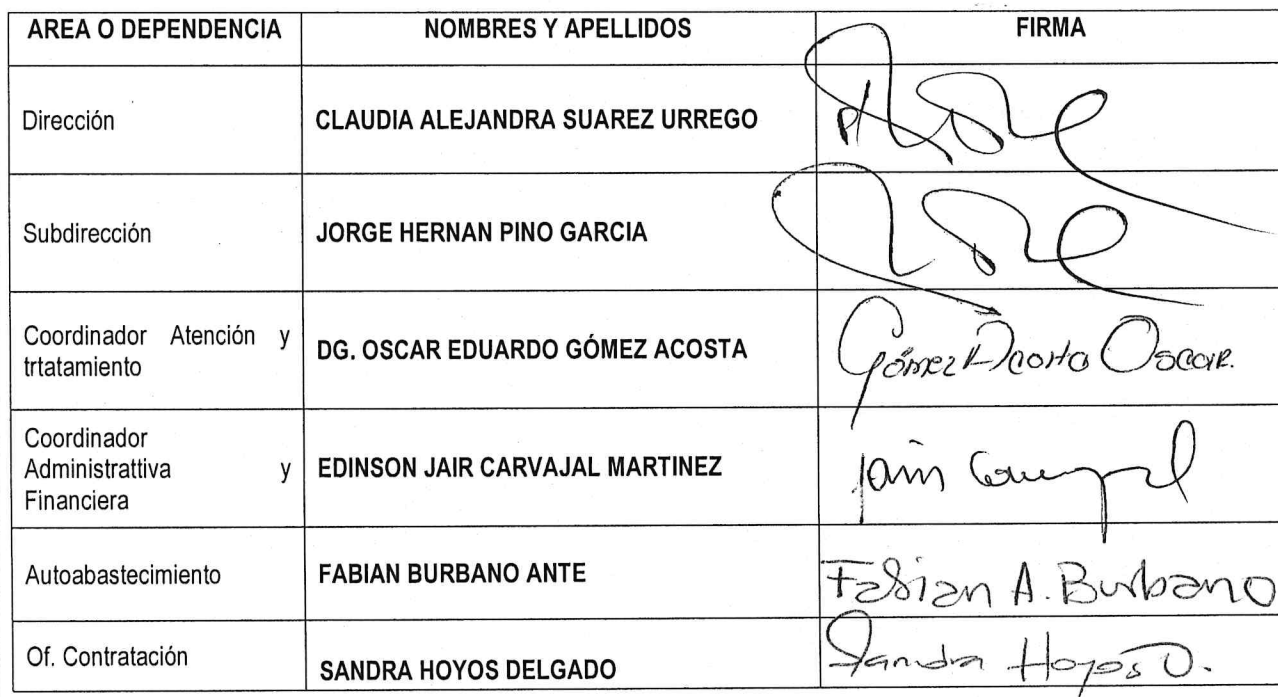 AREA O DEPENDENCIA NOMBRES Y APELLIDOS FIRMA
Dirección CLAUDIA ALEJANDRA SUAREZ URREGO
Subdirección JORGE HERNAN PINO GARCIA
Coordinador Atención y
trtatamiento
DG. OSCAR EDUARDO GÓMEZ ACOSTA Gómez Acosta Oscar.
Coordinador
Administrattiva y
Financiera
EDINSON JAIR CARVAJAL MARTINEZ
Autoabastecimiento FABIAN BURBANO ANTE Fabian A. Burbano
Of. Contratación SANDRA HOYOS DELGADO Sandra Hoyos D.